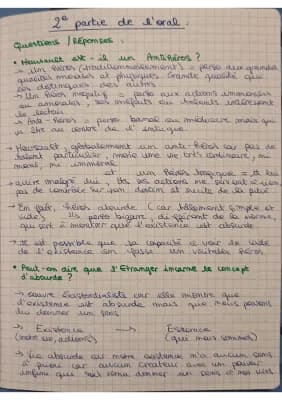 2e partie de l'oral.
Questions / Réponses :
• Meursault est-il un Antihéros ?
→ Un héros (traditionnellement) = perso aux grandes
qualités morales et physiques. Grande qualité qui
les distingue des autres
→ Un héros = perso aux actions immorales
ou amorales, ses méfaits
le lecteur
→ Anti-héros = perso banal ou médiocre mais qui
va être au centre de l'intrigue
→ Meursault, globalement un anti-héros car pas de
talent particulier, mène une vie très ordinaire, ni
moral, ni immoral
et un héros tragique =
malgré lui, ses actions ne servent à rien
pas de contrôle sur son destin et
→ En fait, héros absurde (car tellement simple et
vide) perso bizarre, de la norme,
qui sert à montrer que l'existence est absurde
→ Il est possible que sa capacité à voir le vide
de l'existence en fasse un véritable héros
• Peut-on dire que l'Etranger incarne le concept
d'absurde ?
→ oeuvre existentialiste car elle montre que
l'existence est absurde mais que nous pouvons
lui donner un sens
→ Existence → Essence
(notre vie, actions) (qui nous sommes)
→ Vie absurde car notre existence n'a aucun sens
à priori car aucun créateur avec un pouvoir
infini qui soit venu donner un sens à nos vies